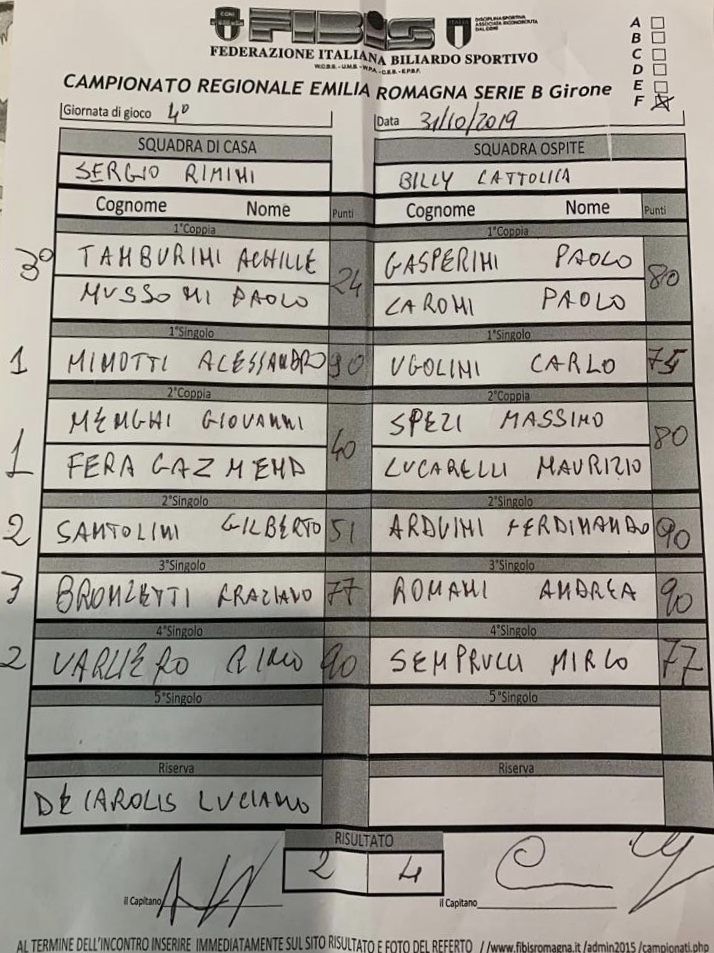 FIBIS
DISCIPLINA SPORTIVA ASSOCIATA RICONOSCIUTA DAL CONI
FEDERAZIONE ITALIANA BILIARDO SPORTIVO
W.C.B.S. - U.M.B. - W.P.A. - C.E.B. - E.P.B.F.
CAMPIONATO REGIONALE EMILIA ROMAGNA SERIE B Girone
A
B
C
D
E
F
Giornata di gioco 4° Data 31/10/2019
SQUADRA DI CASA SQUADRA OSPITE
SERGIO RIMINI BILLY CATTOLICA
Cognome Nome Punti Cognome Nome Punti
1°Coppia 1°Coppia
3° TAMBURINI ACHILLE 24 GASPERINI PAOLO 80
MUSSONI PAOLO CARONI PAOLO
1°Singolo 1°Singolo
1 MINOTTI ALESSANDRO 90 UGOLINI CARLO 75
2°Coppia 2°Coppia
1 MENGHI GIOVANNI 40 SPEZI MASSIMO 80
FERA GAZMEND LUCARELLI MAURIZIO
2°Singolo 2°Singolo
2 SANTOLINI GILBERTO 51 ARDUINI FERDINANDO 90
3°Singolo 3°Singolo
3 BRONZETTI GRAZIANO 77 ROMANI ANDREA 90
4°Singolo 4°Singolo
2 VARLIERO 90 SEMPRUCCI MIRCO 77
5°Singolo 5°Singolo
Riserva Riserva
DE CAROLIS LUCIANO
RISULTATO
2 4
il Capitano il Capitano
AL TERMINE DELL'INCONTRO INSERIRE IMMEDIATAMENTE SUL SITO RISULTATO E FOTO DEL REFERTO //www.fibisromagna.it/admin2015/campionati.php